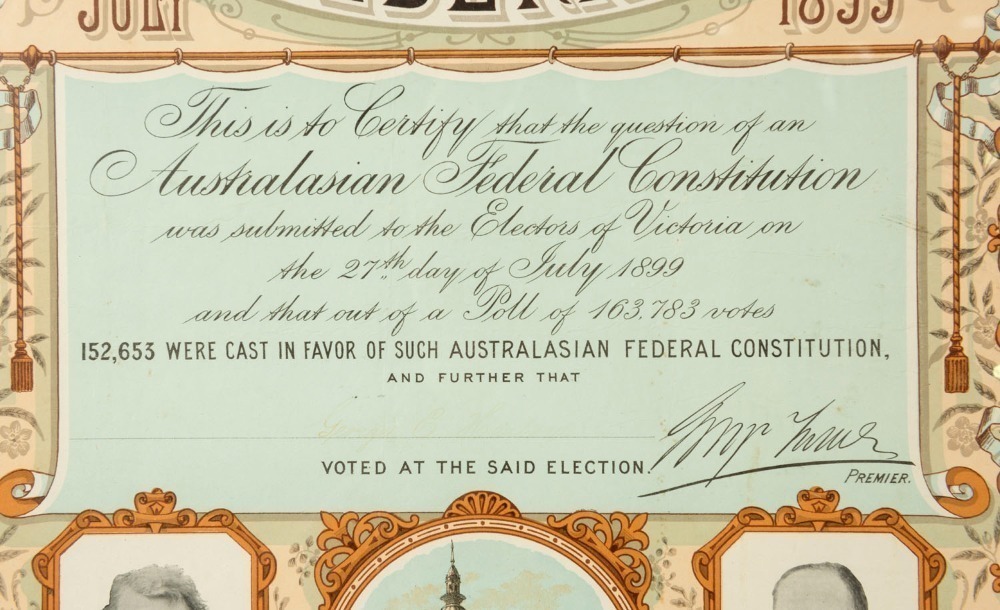 JULY 1899
This is to Certify that the question of an
Australasian Federal Constitution
was submitted to the Electors of Victoria on
the 27th day of July 1899
and that out of a Poll of 163,783 votes
152,653 WERE CAST IN FAVOR OF SUCH AUSTRALASIAN FEDERAL CONSTITUTION,
AND FURTHER THAT
VOTED AT THE SAID ELECTION.
PREMIER.